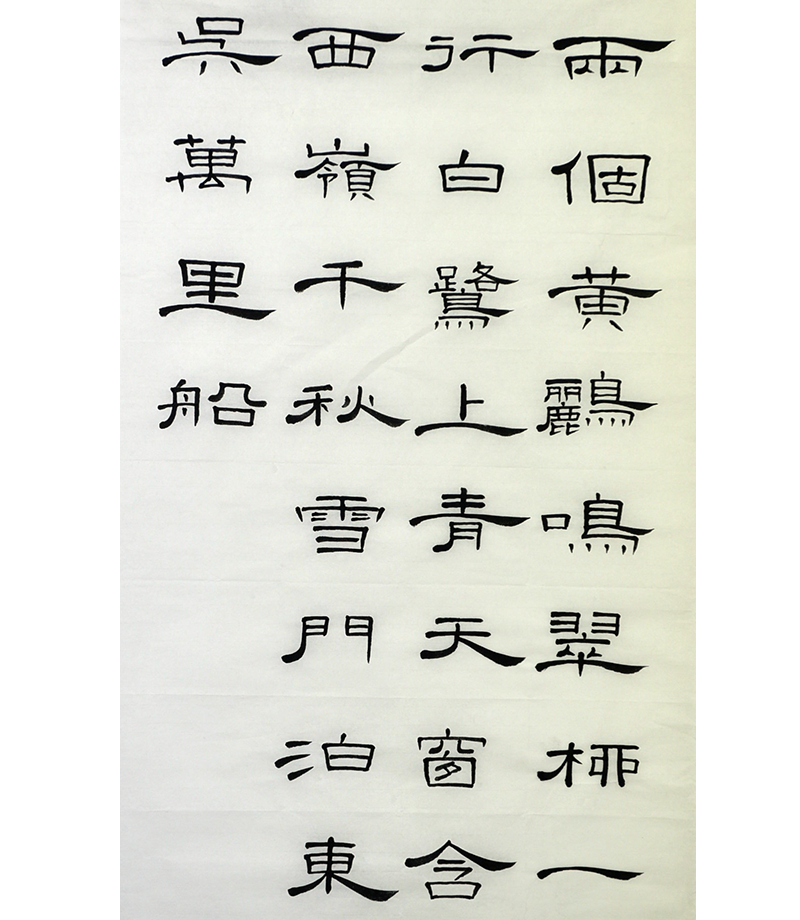 兩個黃鸝鳴翠柳一
行白鷺上青天窗含
西嶺千秋雪門泊東
吳萬里船